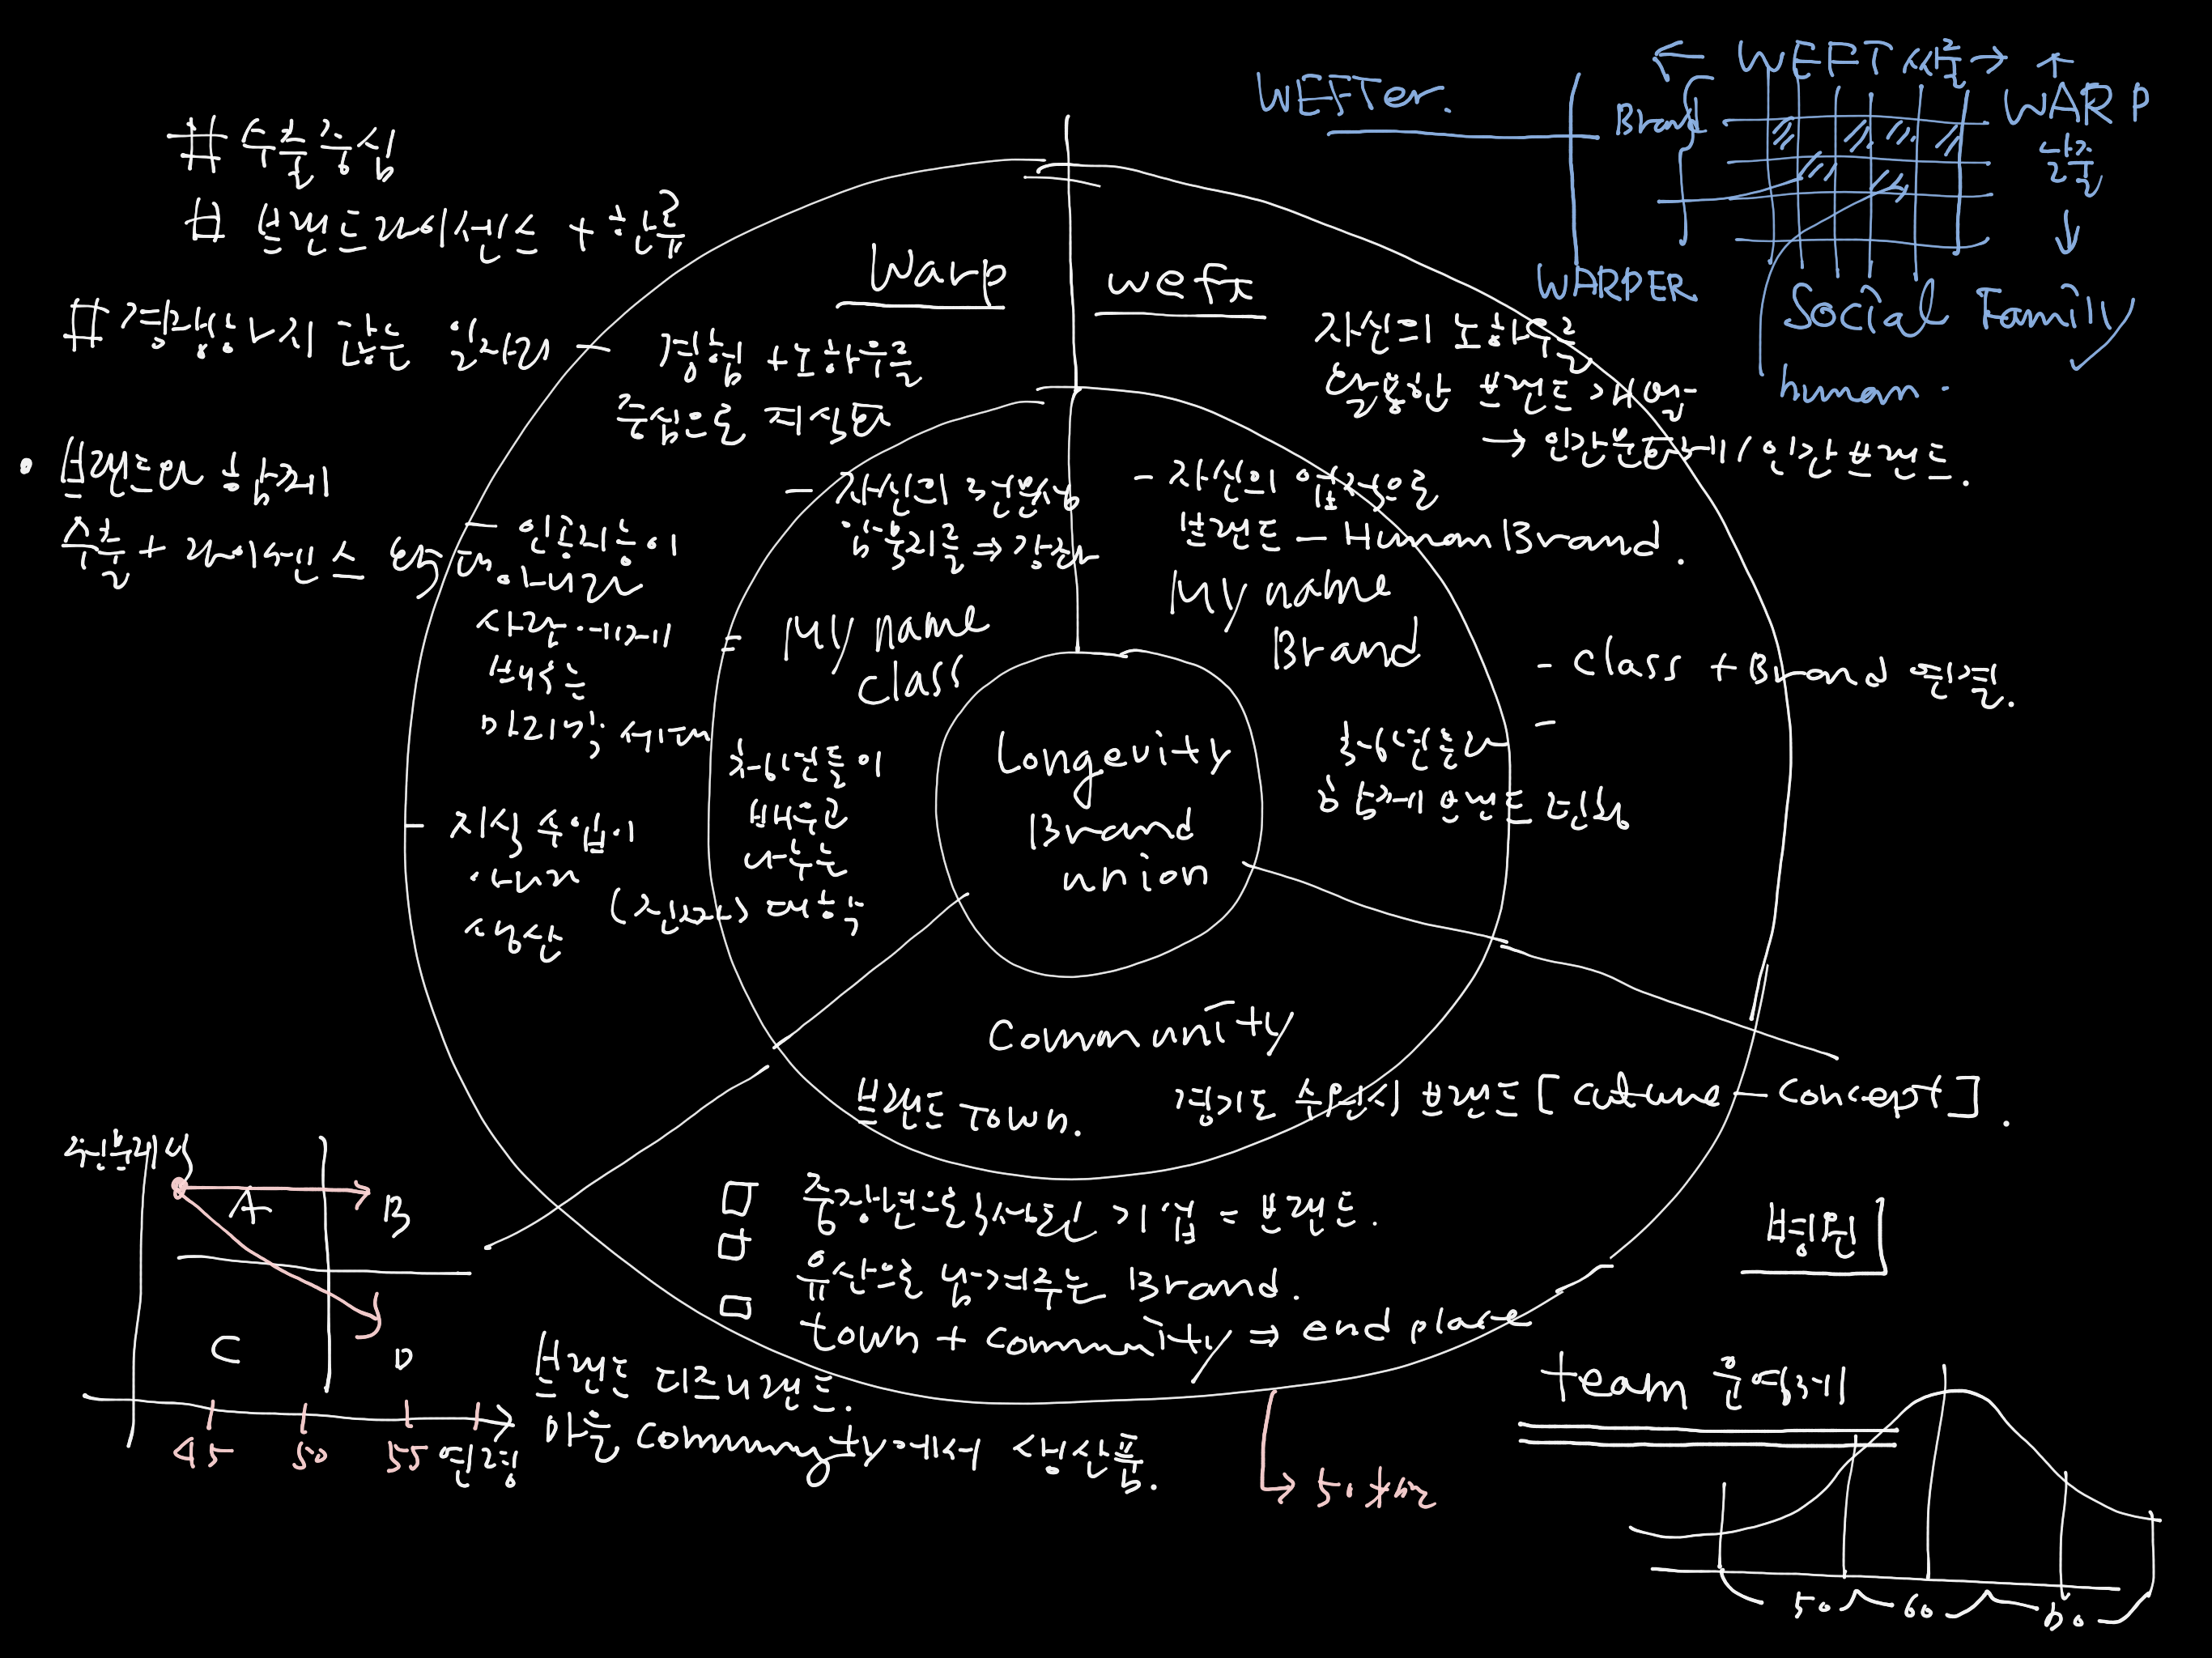 # 수출중심
# 브랜드라이선스 + 한류
# 경쟁상나지 않는 일자리
• 브랜드와 함께
수출 + 라이센스 확대
Warp
- 경험 + 노하우를
중심으로 지식화
- 인공지능이
아니라
사람에게
배우는
마지막 세대
- 지식 수입이
아니라
생산
- 자신의 전반생
함축지를 ⇒ 강좌
= My name
class
3~6년들이
배우고
나누는
(전문가) 대학
weft
자신의 노하우를
활용한 브랜드 개발
→ 인간문화재 / 인간 브랜드.
- 자신의 업적으로
브랜드 - Human Brand.
My name
Brand
- class + Brand 연결.
-
3~6년들과
함께 브랜드 런칭
Longevity
Brand
union
Community
브랜드 Town.
경기도 수원시 브랜드 [culture - concept].
□ 중장년으로 구성된 기업 = 브랜드.
□ 유산으로 남겨주는 Brand.
□ town + community ⇒ end place
→ 50
WEFTer.
WARPER
← WEFT 씨줄 →
↑ WARP
날줄
↓
Brand
Social Family
human.
A
B
C
D
45 50 55 연령
브랜드 미즈니랜드.
마을 community에서 생산품.
병원
team 운영체계
50 60